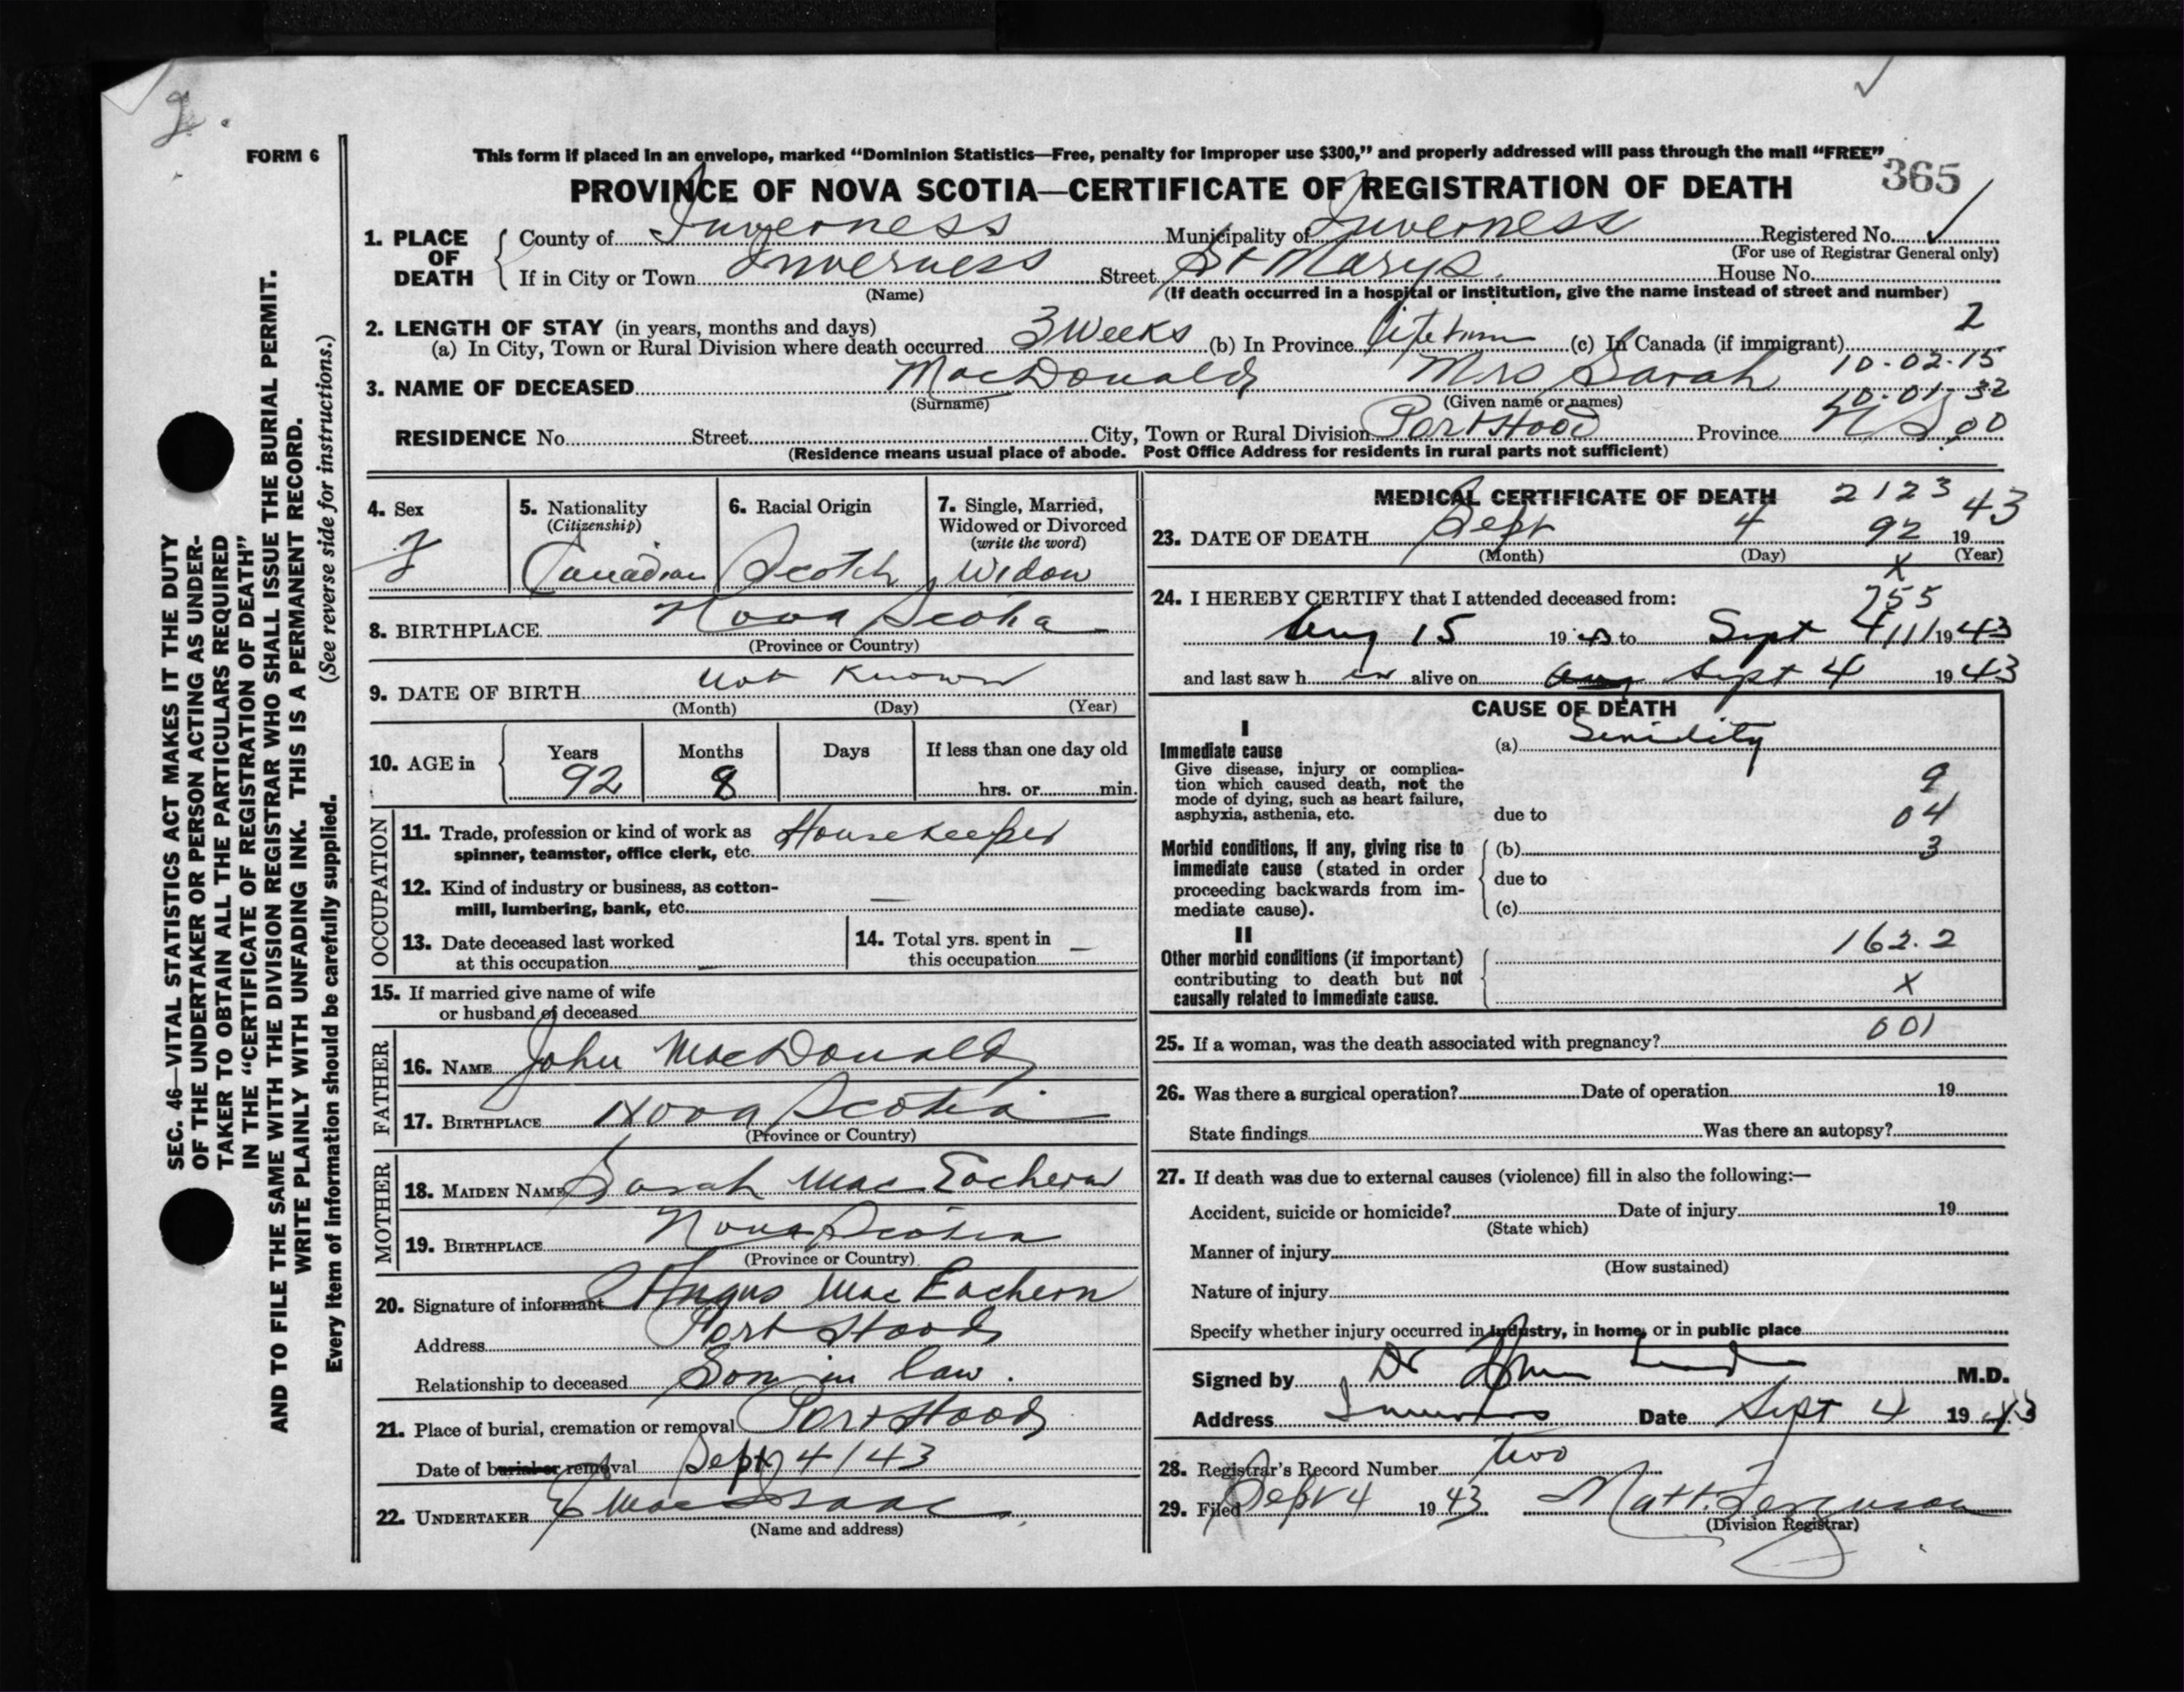 2.
FORM 6
This form if placed in an envelope, marked “Dominion Statistics—Free, penalty for improper use $300,” and properly addressed will pass through the mail “FREE”
365
PROVINCE OF NOVA SCOTIA—CERTIFICATE OF REGISTRATION OF DEATH
1. PLACE OF DEATH
County of Inverness Municipality of Inverness Registered No. ✓
(For use of Registrar General only)
If in City or Town Inverness Street St Marys. House No.
(Name) (If death occurred in a hospital or institution, give the name instead of street and number)
2. LENGTH OF STAY (in years, months and days) 2
(a) In City, Town or Rural Division where death occurred 3 Weeks (b) In Province lifetime (c) In Canada (if immigrant)
10-02-15
3. NAME OF DECEASED MacDonald Mrs Sarah
(Surname) (Given name or names) 10-01-32
RESIDENCE No. Street City, Town or Rural Division Port Hood Province N S 00
(Residence means usual place of abode. Post Office Address for residents in rural parts not sufficient)
4. Sex
F
5. Nationality
(Citizenship)
Canadian
6. Racial Origin
Scotch
7. Single, Married,
Widowed or Divorced
(write the word)
Widow
8. BIRTHPLACE Nova Scotia
(Province or Country)
9. DATE OF BIRTH not Known
(Month) (Day) (Year)
10. AGE in
Years Months Days If less than one day old
92 8 hrs. or min.
OCCUPATION
11. Trade, profession or kind of work as
spinner, teamster, office clerk, etc. Housekeeper
12. Kind of industry or business, as cotton-
mill, lumbering, bank, etc. —
13. Date deceased last worked
at this occupation —
14. Total yrs. spent in
this occupation —
15. If married give name of wife
or husband of deceased
FATHER
16. NAME John MacDonald
17. BIRTHPLACE Nova Scotia
(Province or Country)
MOTHER
18. MAIDEN NAME Sarah MacEachern
19. BIRTHPLACE Nova Scotia
(Province or Country)
20. Signature of informant Angus MacEachern
Address Port Hood
Relationship to deceased Son in law.
21. Place of burial, cremation or removal Port Hood
Date of burial or removal Sept 4/43
22. UNDERTAKER MacIsaac
(Name and address)
MEDICAL CERTIFICATE OF DEATH 2123
23. DATE OF DEATH Sept 4 92 19 43
(Month) (Day) (Year)
X
24. I HEREBY CERTIFY that I attended deceased from: 755
Aug 15 19 43 to Sept 4/11 19 43
and last saw h er alive on Aug Sept 4 19 43
CAUSE OF DEATH
I
Immediate cause
Give disease, injury or complica-
tion which caused death, not the
mode of dying, such as heart failure,
asphyxia, asthenia, etc.
(a) Senility
9
due to 04
Morbid conditions, if any, giving rise to
immediate cause (stated in order
proceeding backwards from im-
mediate cause).
(b) 3
due to
(c)
II
Other morbid conditions (if important)
contributing to death but not
causally related to immediate cause.
162.2
X
25. If a woman, was the death associated with pregnancy? 001
26. Was there a surgical operation? Date of operation 19
State findings Was there an autopsy?
27. If death was due to external causes (violence) fill in also the following:—
Accident, suicide or homicide? Date of injury 19
(State which)
Manner of injury
(How sustained)
Nature of injury
Specify whether injury occurred in industry, in home, or in public place
Signed by Dr M.D.
Address Inverness Date Sept 4 19 43
28. Registrar's Record Number two
29. Filed Sept 4 19 43 Matt. Ferguson
(Division Registrar)
SEC. 46—VITAL STATISTICS ACT MAKES IT THE DUTY
OF THE UNDERTAKER OR PERSON ACTING AS UNDER-
TAKER TO OBTAIN ALL THE PARTICULARS REQUIRED
IN THE “CERTIFICATE OF REGISTRATION OF DEATH”
AND TO FILE THE SAME WITH THE DIVISION REGISTRAR WHO SHALL ISSUE THE BURIAL PERMIT.
WRITE PLAINLY WITH UNFADING INK. THIS IS A PERMANENT RECORD.
Every item of information should be carefully supplied. (See reverse side for instructions.)